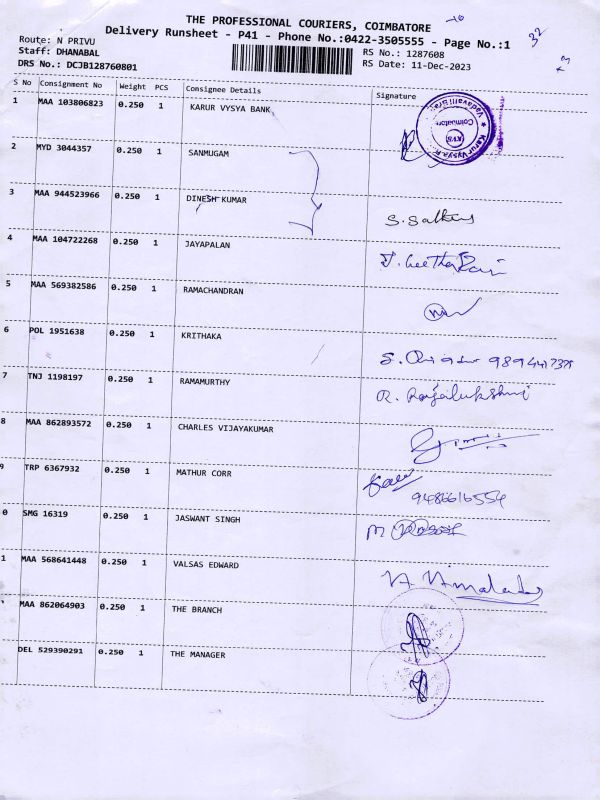 THE PROFESSIONAL COURIERS, COIMBATORE
Delivery Runsheet - P41 - Phone No.:0422-3505555 - Page No.:1
32
Route: N PRIVU
RS No.: 1287608
Staff: DHANABAL
RS Date: 11-Dec-2023
DRS No.: DCJB128760801
S No Consignment No Weight PCS Consignee Details Signature
1 MAA 103806823 0.250 1 KARUR VYSYA BANK,
Coimbatore
KVB
2 MYD 3044357 0.250 1 SANMUGAM
3 MAA 944523966 0.250 1 DINESH KUMAR
4 MAA 104722268 0.250 1 JAYAPALAN
5 MAA 569382586 0.250 1 RAMACHANDRAN
6 POL 1951638 0.250 1 KRITHAKA
7 TNJ 1198197 0.250 1 RAMAMURTHY
R. Rajalukshmi
8 MAA 862893572 0.250 1 CHARLES VIJAYAKUMAR
9 TRP 6367932 0.250 1 MATHUR CORR
9486616554
0 SMG 16319 0.250 1 JASWANT SINGH
1 MAA 568641448 0.250 1 VALSAS EDWARD
MAA 862064903 0.250 1 THE BRANCH
DEL 529390291 0.250 1 THE MANAGER